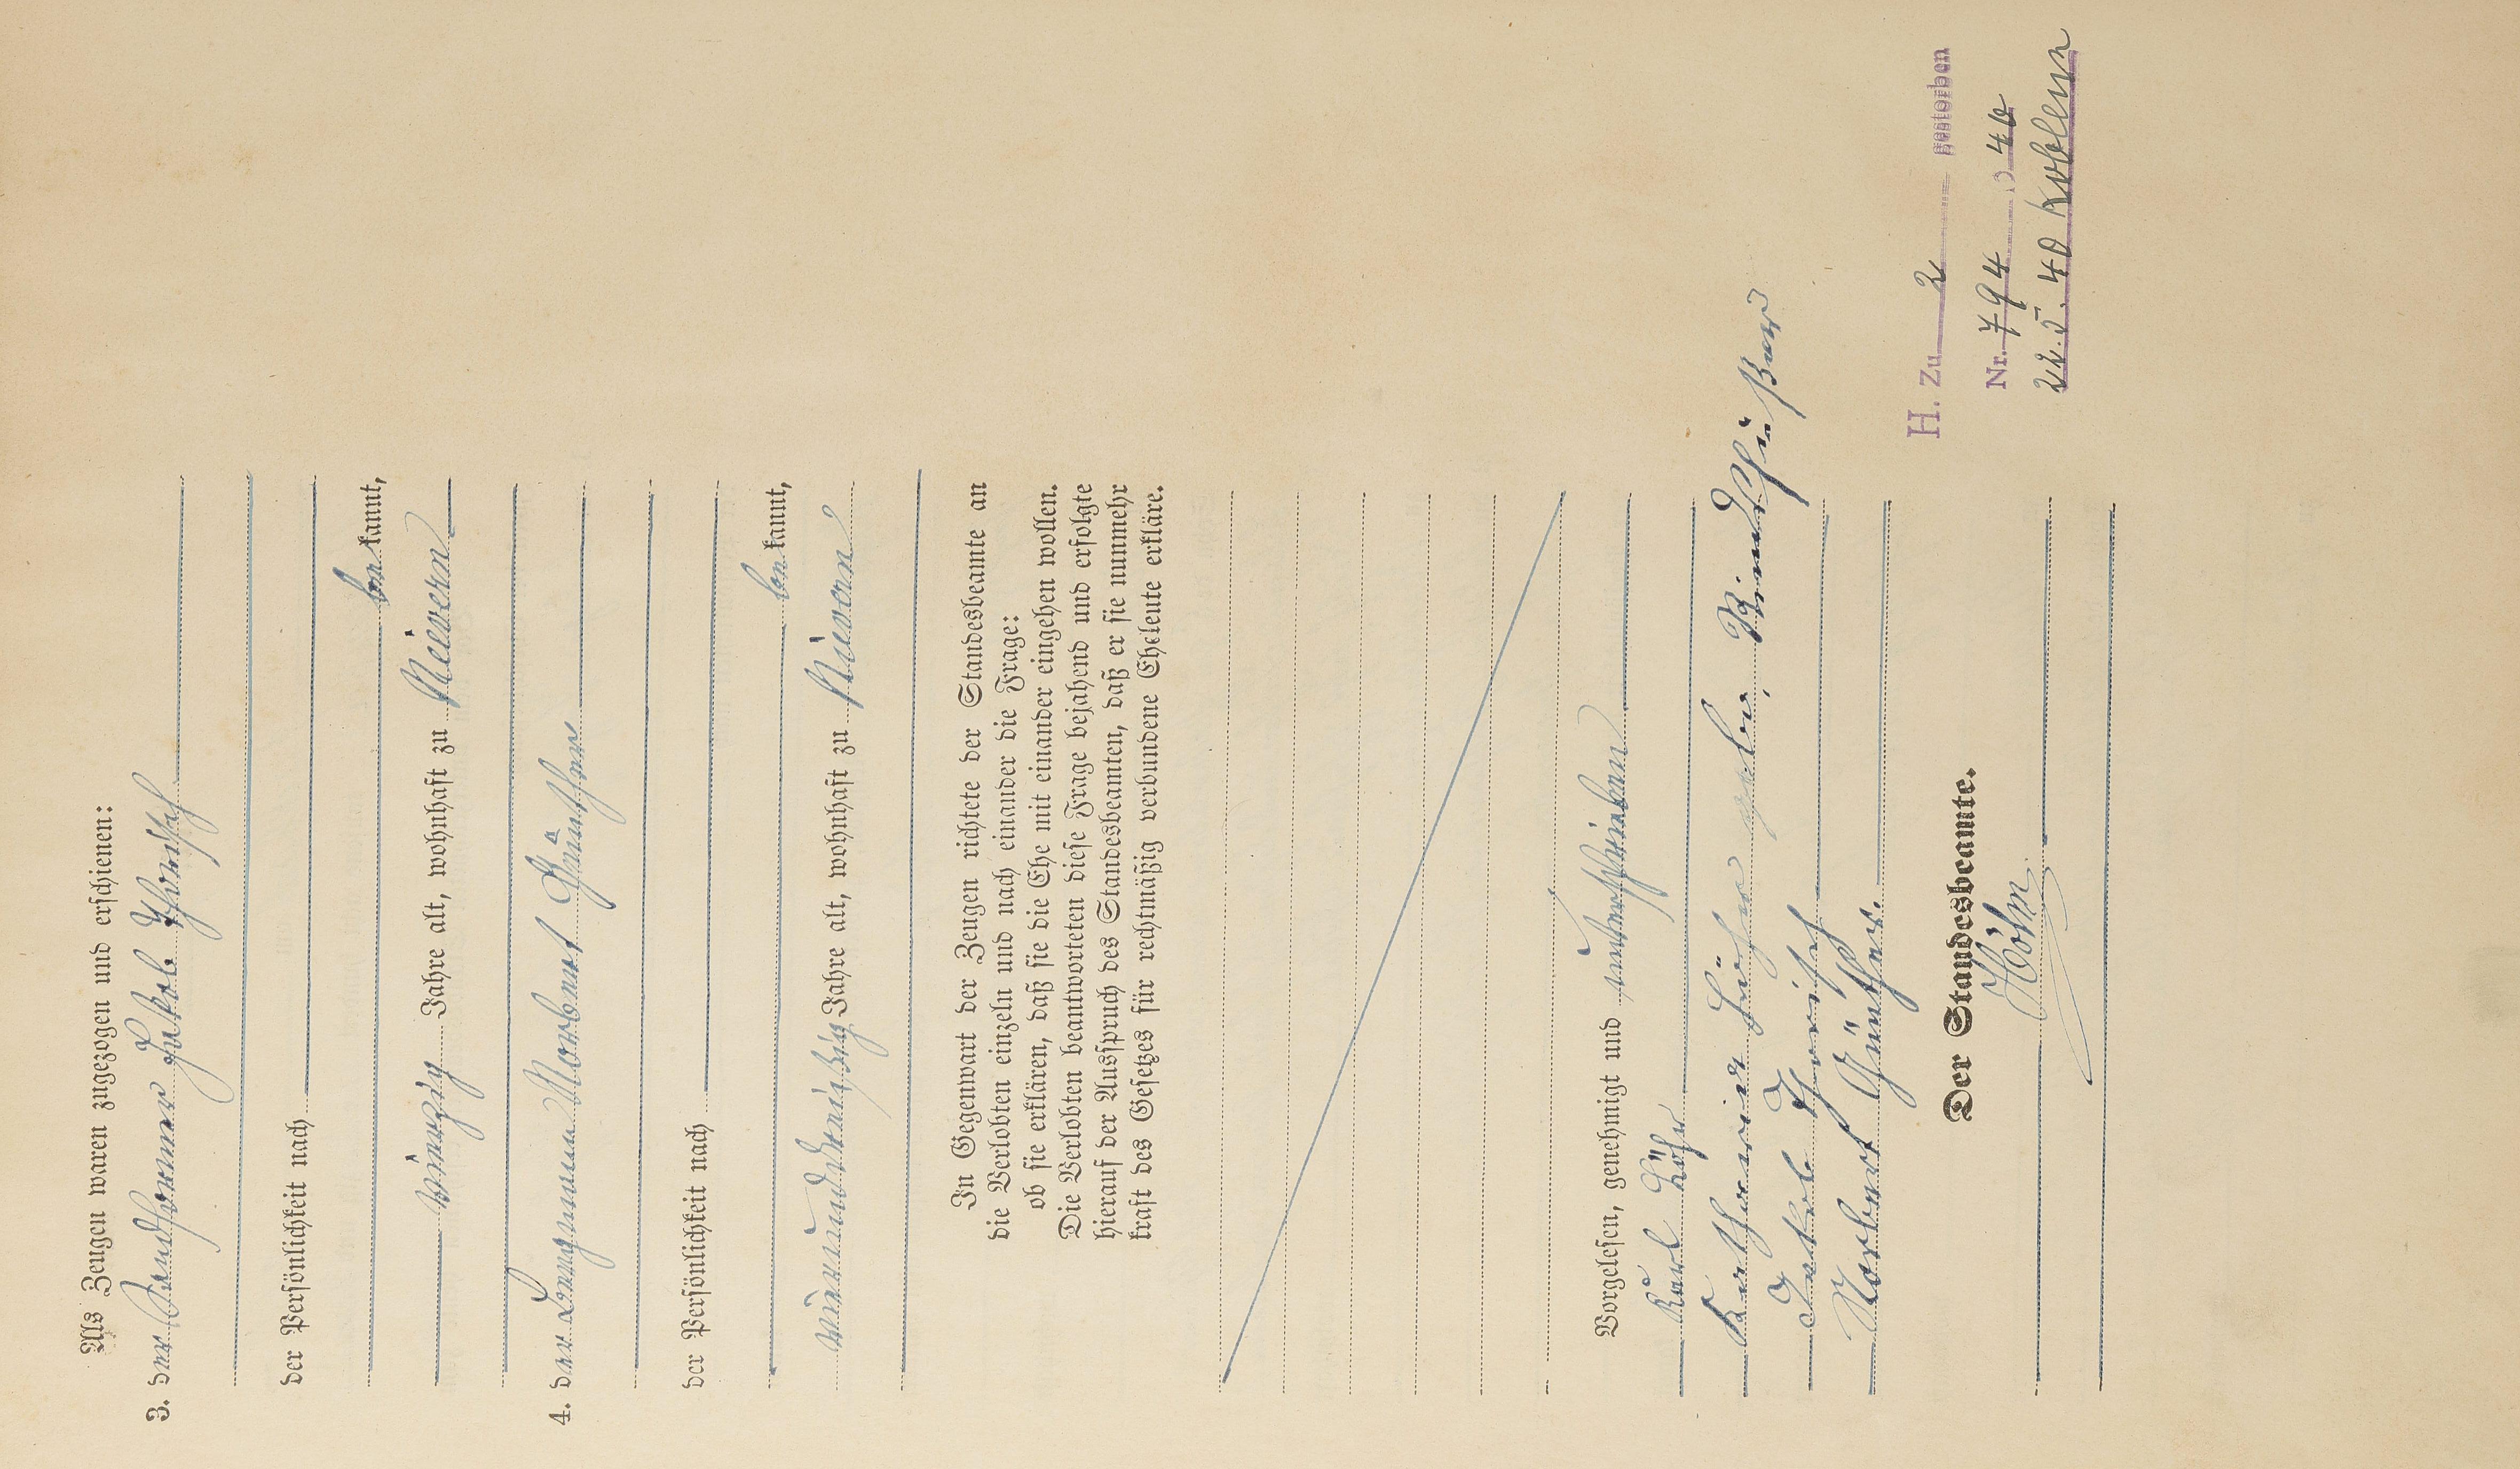 Als Zeugen waren zugezogen und erschienen:
3. der Sandformer Jakob Thorisch
der Persönlichkeit nach
bekannt,
vierzig Jahre alt, wohnhaft zu Nievern
4. der Norbert Günther
der Persönlichkeit nach
bekannt,
vierunddreißig Jahre alt, wohnhaft zu Nievern
In Gegenwart der Zeugen richtete der Standesbeamte an
die Verlobten einzeln und nach einander die Frage:
ob sie erklären, daß sie die Ehe mit einander eingehen wollen.
Die Verlobten beantworteten diese Frage bejahend und erfolgte
hierauf der Ausspruch des Standesbeamten, daß er sie nunmehr
kraft des Gesetzes für rechtmäßig verbundene Eheleute erkläre.
Vorgelesen, genehmigt und unterschrieben
Karl Löhr
Katharina Löhr gebo.
Jakob Thorisch
Norbert Günther.
Der Standesbeamte.
Höhn
H. Zu 2 gestorben
Nr. 794 40
22.5.40 Koblenz